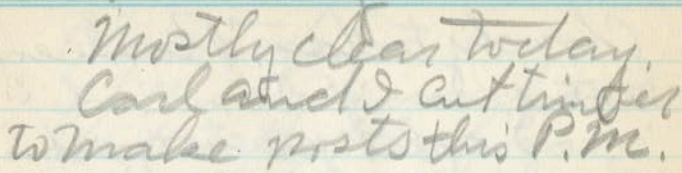 Mostly clear today.
Carl and I cut timber
to make posts this P.M.